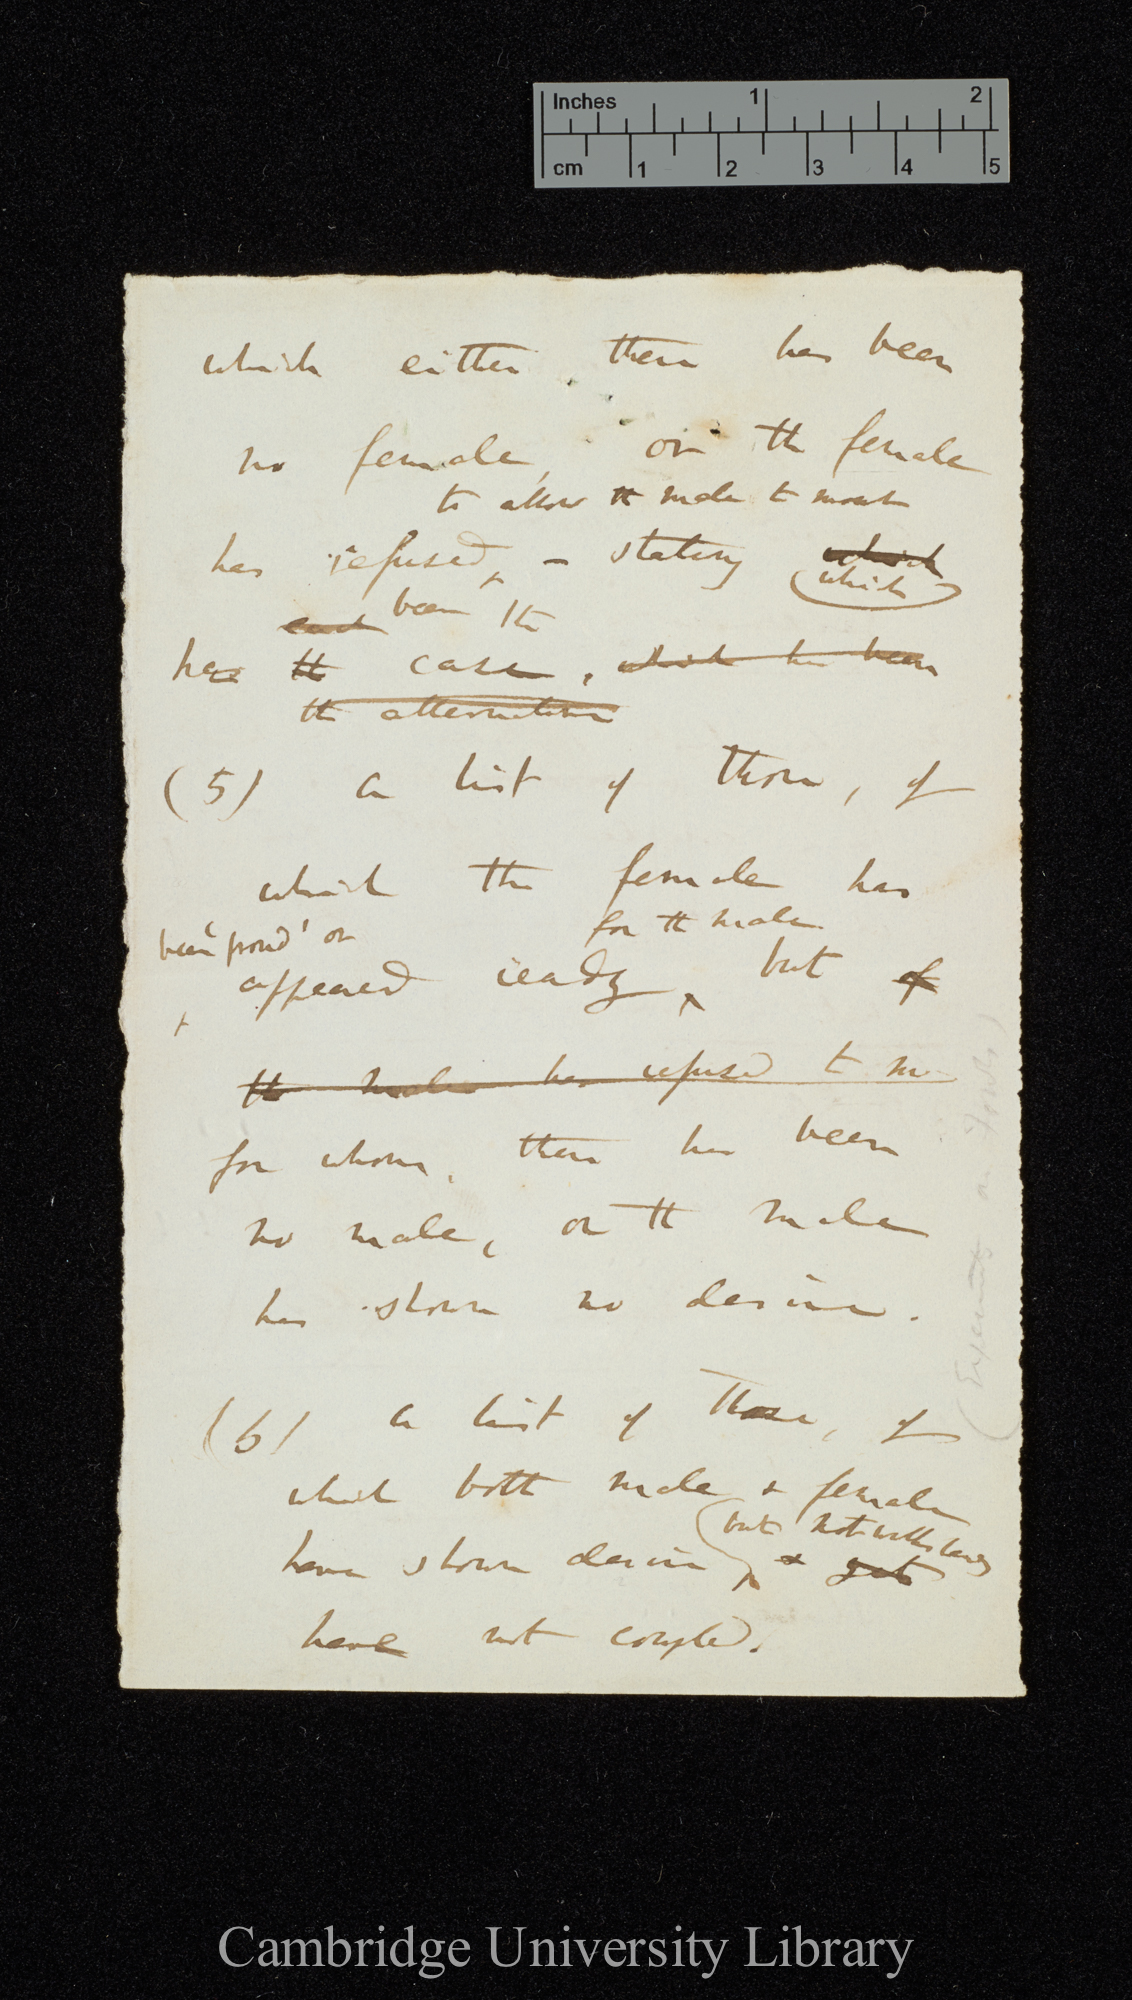 Inches 1 2
cm 1 2 3 4 5
which either there has been
no female, or the female
to allow the male to mount
has refused, – stating which
which
been the
has the case, which has been
the alternative
(5) a list of those, of
which the female has
been 'proud' or for the male
appeared ready, but of
the male has refused to mo
for whom there has been
no male, or the male
has shown no desire.
(6) a list of those, of
which both male & female
but notwithstanding
have shown desire, & yet
have not coupled.
(Experiments on Fowls)
Cambridge University Library